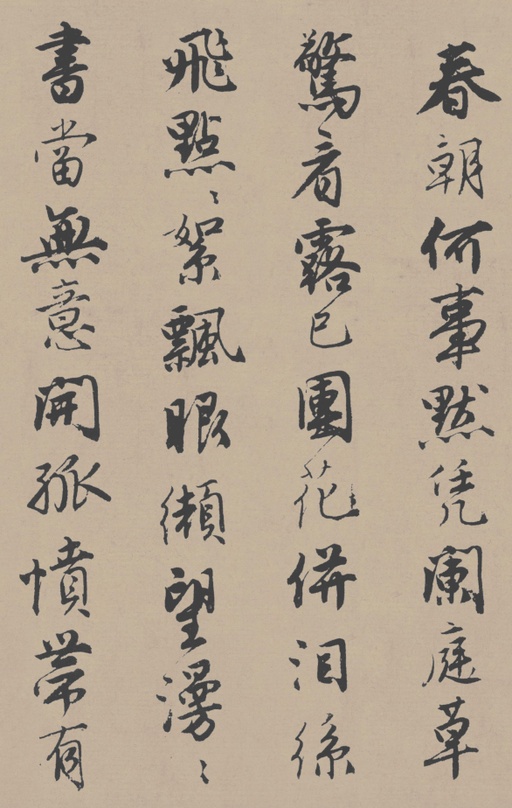 春朝何事默凭闌庭草
驚看露已團花併泪絲
飛點々絮飄眼纈望漫々
書當無意開孤憤帶有